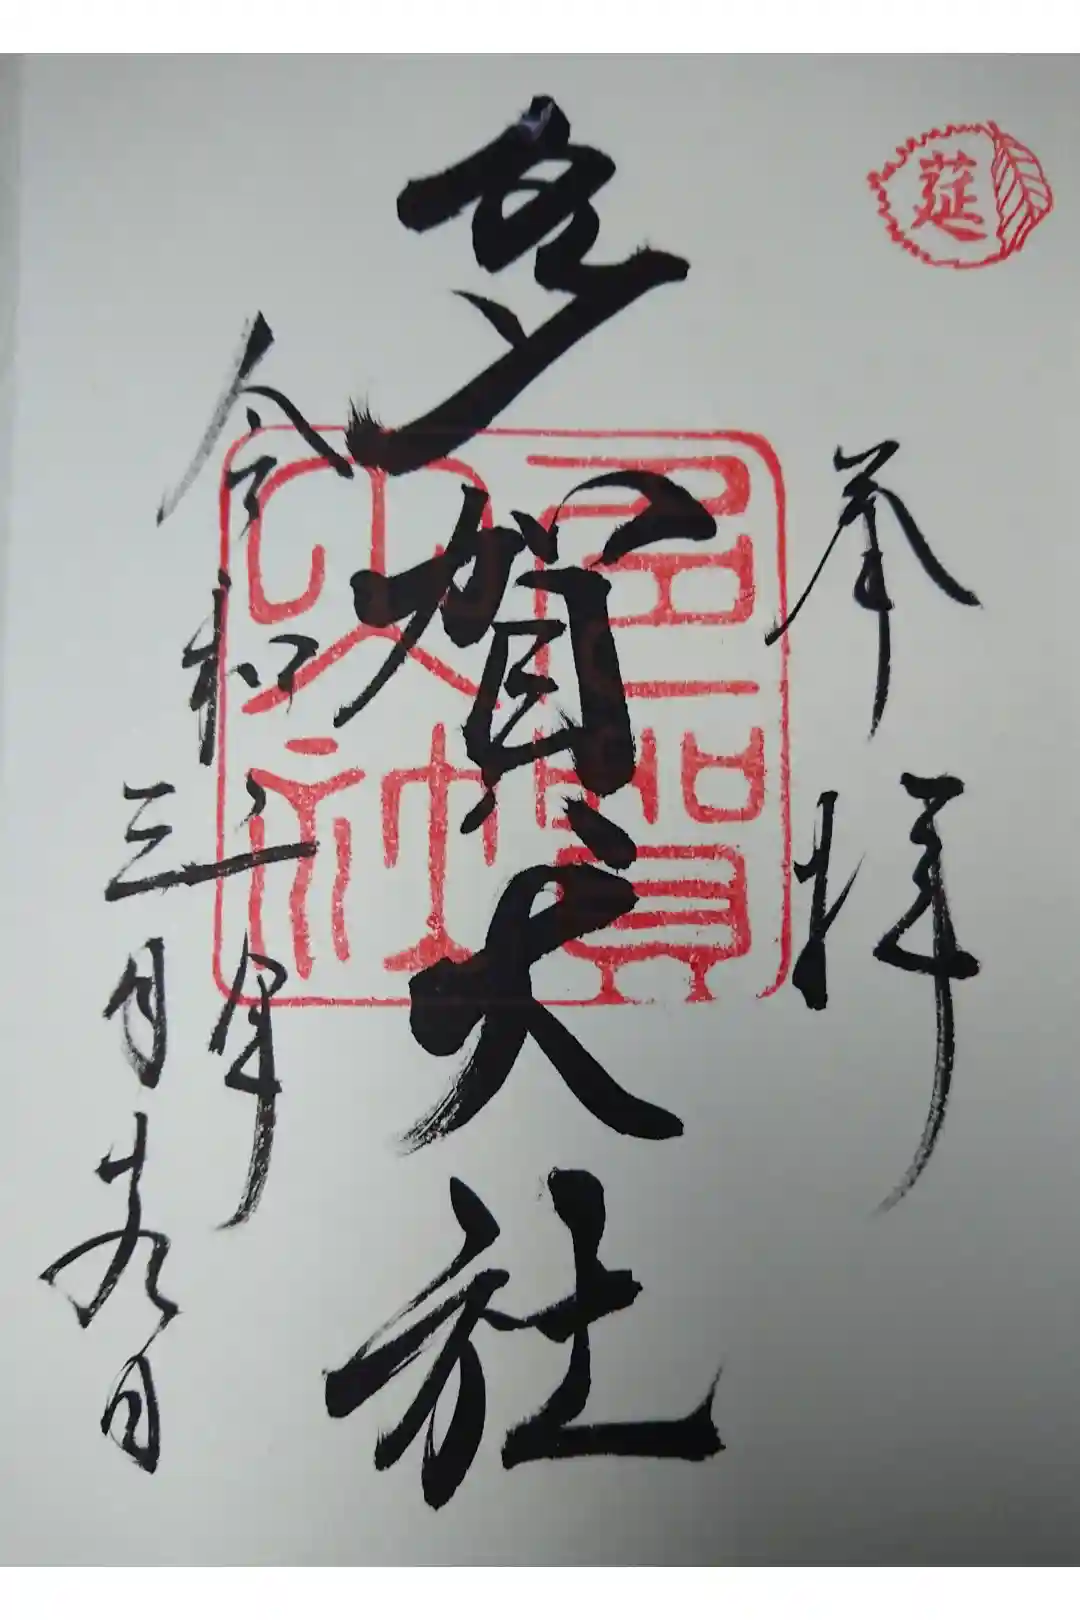 莚
奉拝
多賀大社
多賀
大社
令和二年
三月廿九日